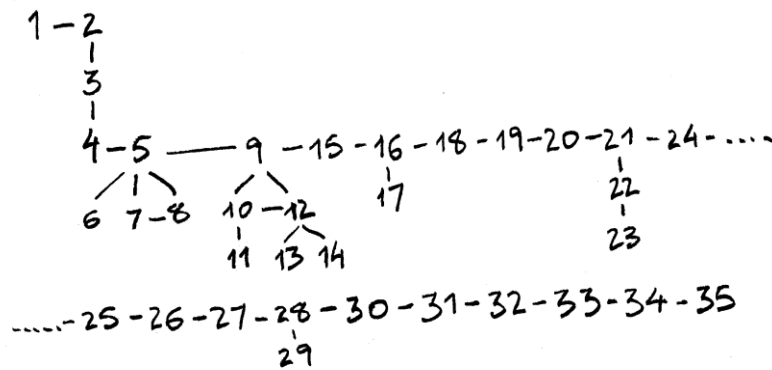 1 - 2
3
4 - 5 — 9 - 15 - 16 - 18 - 19 - 20 - 21 - 24 - .....
6 7 - 8 10 - 12 17 22
11 13 14 23
..... - 25 - 26 - 27 - 28 - 30 - 31 - 32 - 33 - 34 - 35
29